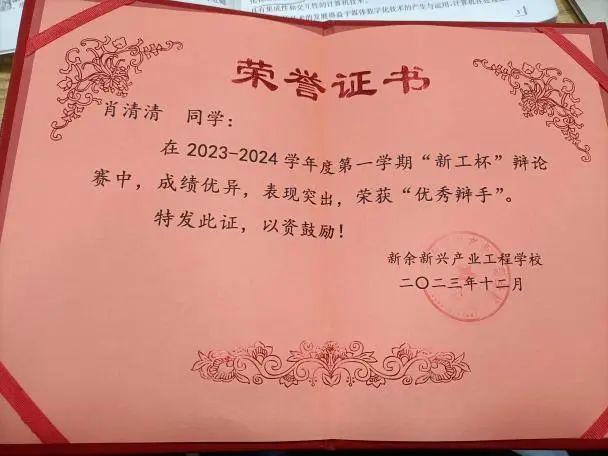 具有集成性和交互性的计算机技术。
荣誉证书
肖清清 同学：
在2023-2024学年度第一学期“新工杯”辩论
赛中，成绩优异，表现突出，荣获“优秀辩手”。
特发此证，以资鼓励！
新余新兴产业工程学校
二〇二三年十二月